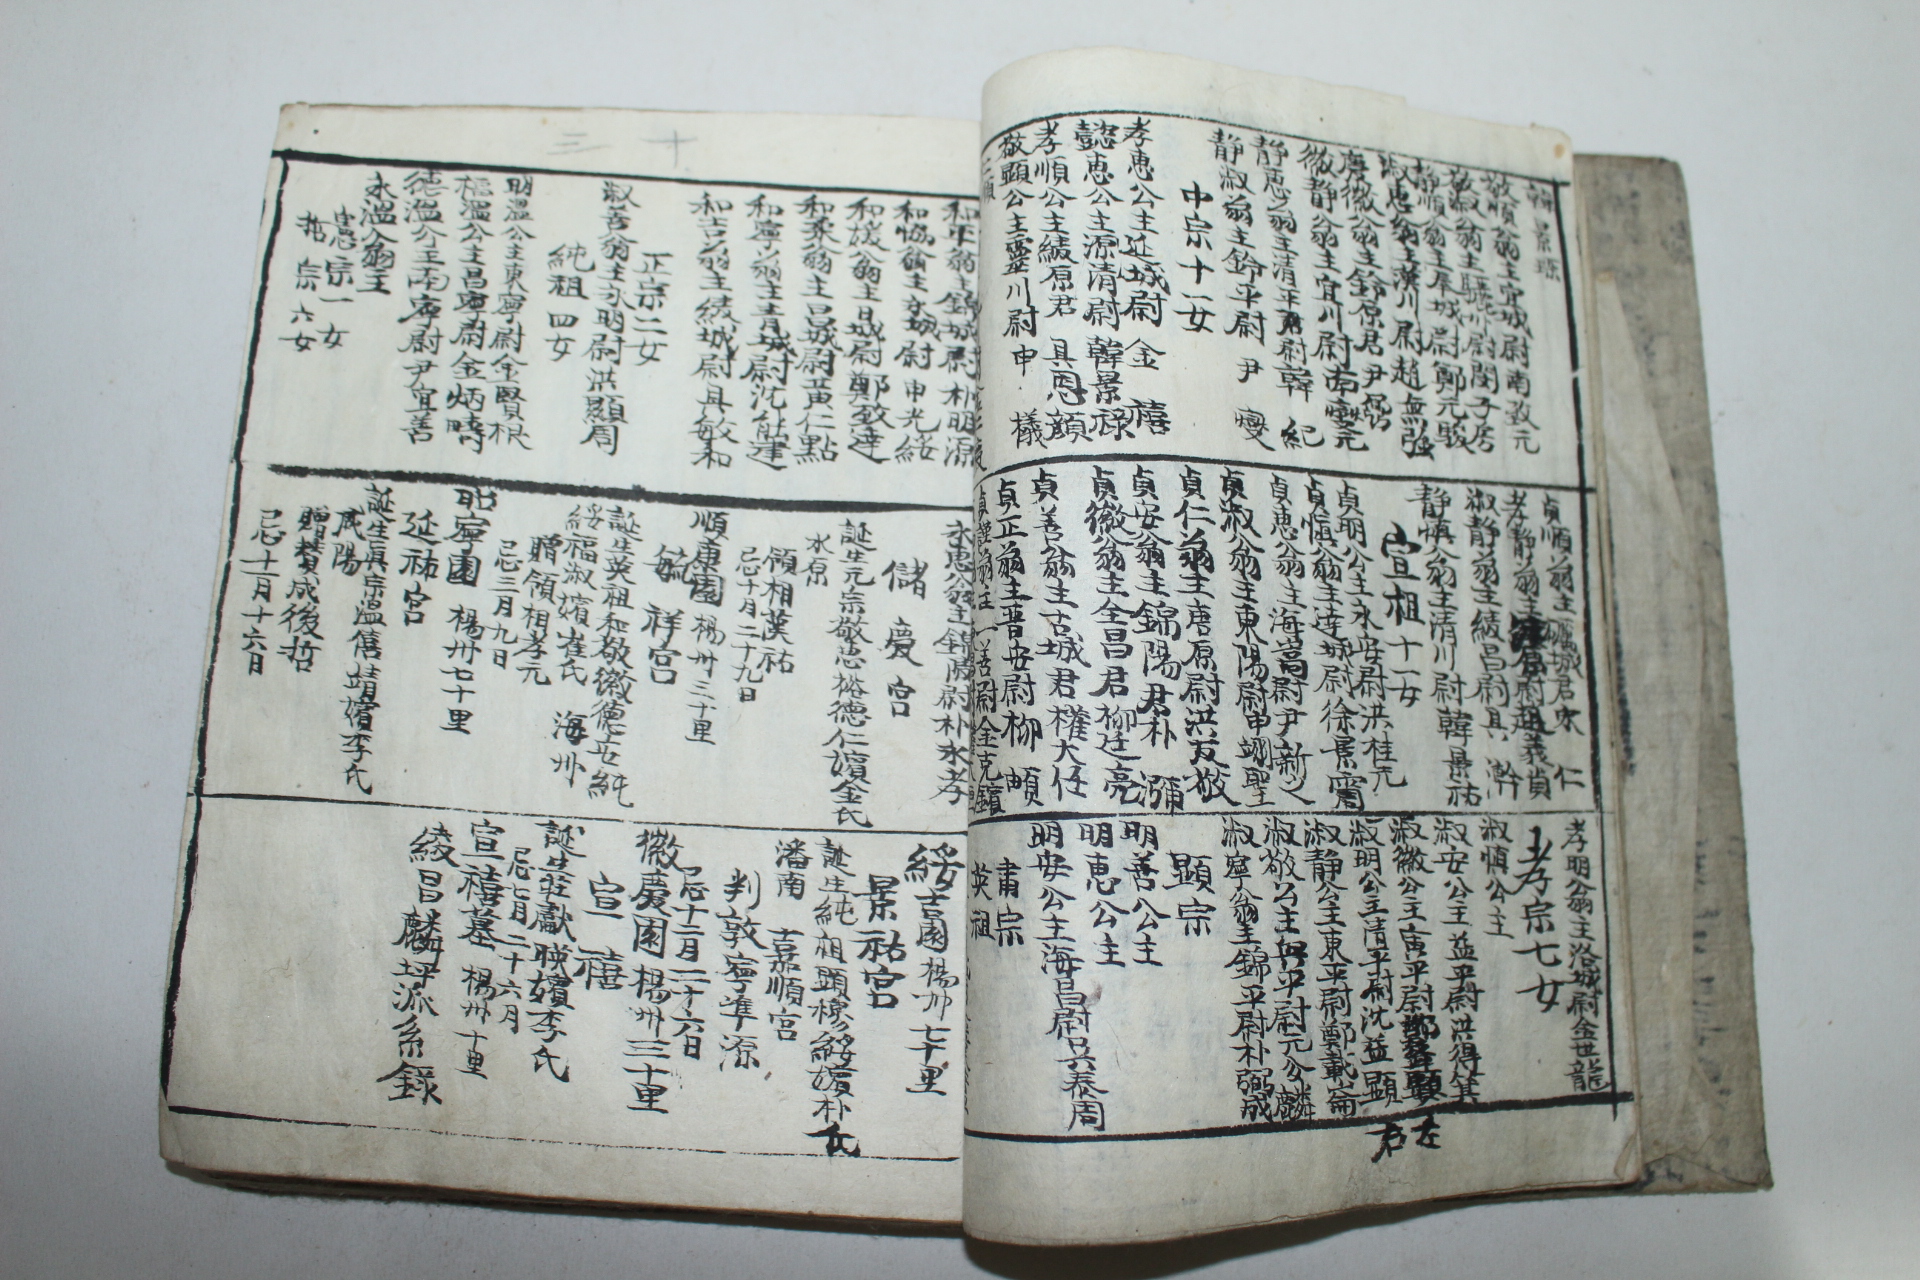 韓景琛
敬順翁主宜城尉南致元
敬淑翁主驪川尉閔子芳
靜順翁主奉城尉鄭元駿
淑惠翁主漢川尉趙無彊
慶徽翁主鈴原君尹磊
徽靜翁主宜川尉南燮元
靜惠翁主清平尉韓紀
靜淑翁主鈴平尉尹燮
中宗十一女
孝惠公主延城尉金禧
懿惠公主源清尉韓景祿
孝順公主綾原君具思顏
敬顯公主靈川尉申檥
貞順翁主礪城君宋仁
孝靜翁主趙義貞
淑靜翁主綾昌尉具澣
靜慎翁主清川尉韓景祐
宣祖十一女
貞明公主永安尉洪柱元
貞慎翁主達城尉徐景霌
貞惠翁主海嵩尉尹新之
貞淑翁主東陽尉申翊聖
貞仁翁主唐原尉洪友敬
貞安翁主錦陽君朴瀰
貞徽翁主全昌君柳廷亮
貞善翁主吉城君權大任
貞正翁主晉安尉柳頔
貞謹翁主一善尉金克鑌
孝明翁主洛城尉金世龍
孝宗七女
淑慎公主
淑安公主益平尉洪得箕
淑徽公主寅平尉鄭齊顯
淑明公主清平尉沈益顯
淑靜公主東平尉鄭載崙
淑敬公主興平尉元夢麟
淑寧翁主錦平尉朴弼成
顯宗
明善公主
明惠公主
明安公主海昌尉吳泰周
肅宗
英祖
左
君
十三
和平翁主錦城尉朴明源
和協翁主永城尉申光綏
和緩翁主日城尉鄭致達
和柔翁主昌城尉黃仁點
和寧翁主青城尉沈能建
和吉翁主綾城尉具敏和
正宗二女
淑善翁主永明尉洪顯周
純祖四女
明溫公主東寧尉金賢根
福溫公主昌寧尉金炳疇
德溫公主南寧尉尹宜善
永溫翁主
憲宗一女
哲宗六女
永惠翁主錦陵尉朴永孝
儲慶宮
誕生元宗敬惠裕德仁嬪金氏
水原
領相漢祐
忌十月二十九日
順康園楊州三十里
毓祥宮
誕生英祖和敬徽德安純
綏福淑嬪崔氏海州
贈領相孝元
忌三月九日
昭寧園楊州七十里
延祐宮
誕生眞宗溫僖靖嬪李氏
咸陽
贈贊成後哲
忌十一月十六日
綏吉園楊州七十里
景祐宮
誕生純祖顯穆綏嬪朴氏
潘南嘉順宮
判敦寧準源
忌十二月二十六日
徽慶園楊州三十里
宣禧
誕生莊獻暎嬪李氏
忌七月二十六日
宣禧墓楊州十里
綾昌麟坪派系錄